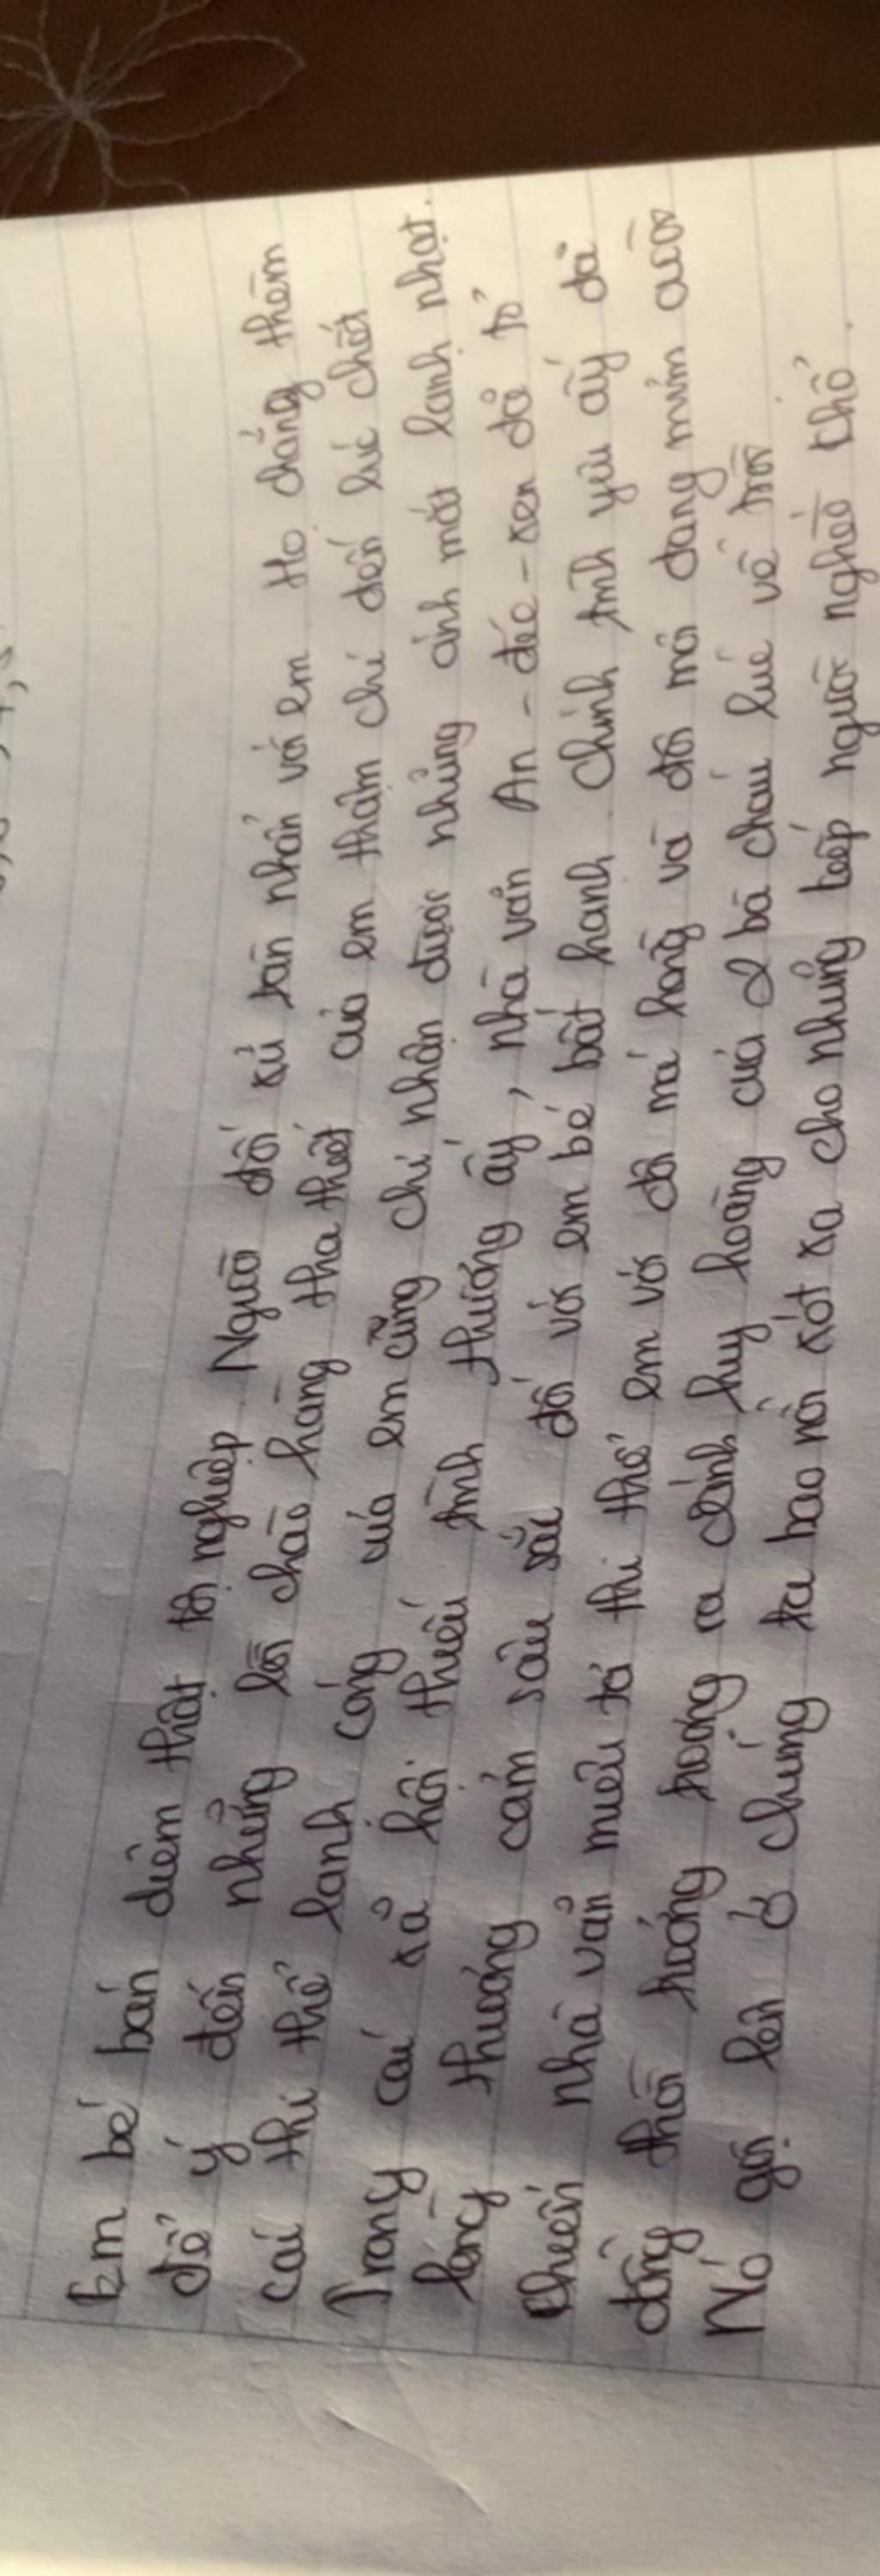 Em bé bán diêm thật tội nghiệp. Người đối xử tàn nhẫn với em. Họ chẳng thèm
để ý đến những lời chào hàng tha thiết của em thậm chí đến lúc chết
cái thi thể lạnh cóng của em cũng chỉ nhận được những ánh mắt lạnh nhạt.
Trong cái xã hội thiếu tình thương ấy, nhà văn An-đéc-xen đã tỏ
lòng thương cảm sâu sắc đối với em bé bất hạnh. Chính tình yêu ấy đã
khiến nhà văn miêu tả thi thể em với đôi má hồng và đôi môi đang mỉm cười
đồng thời hướng tượng ra cảnh huy hoàng của 2 bà cháu lúc về trời
Nó gợi lên ở chúng ta bao nỗi xót xa cho những kiếp người nghèo khổ.